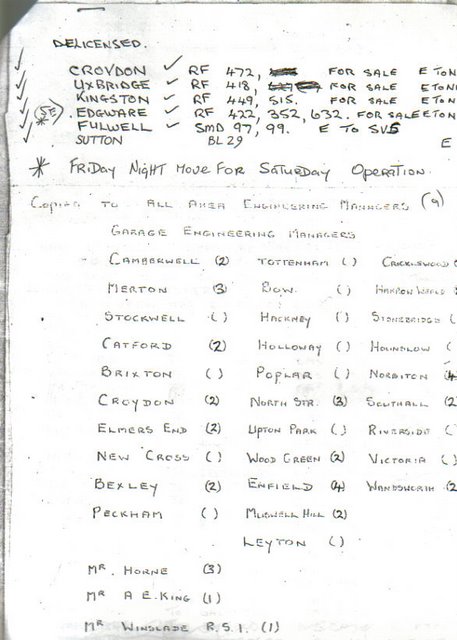 DELICENSED.
CROYDON ✓ RF 472, FOR SALE E TON
UXBRIDGE ✓ RF 418, FOR SALE E TON
KINGSTON ✓ RF 449, 515. FOR SALE E TON
SE * EDGWARE ✓ RF 422, 352, 632. FOR SALE E TON
FULWELL ✓ SMD 97, 99. E TO SVS
SUTTON BL 29 E
* FRIDAY NIGHT MOVE FOR SATURDAY OPERATION.
COPIES TO ALL AREA ENGINEERING MANAGERS (9)
GARAGE ENGINEERING MANAGERS
CAMBERWELL (2) TOTTENHAM ( ) CRICKLEWOOD (
MERTON (3) BOW. ( ) HARROW WEALD (
STOCKWELL ( ) HACKNEY ( ) STONEBRIDGE (
CATFORD (2) HOLLOWAY ( ) HOUNSLOW (
BRIXTON ( ) POPLAR ( ) NORBITON (4
CROYDON (2) NORTH STR. (3) SOUTHALL (2
ELMERS END (2) UPTON PARK ( ) RIVERSIDE (
NEW CROSS ( ) WOOD GREEN (2) VICTORIA ( )
BEXLEY (2) ENFIELD (4) WANDSWORTH (2
PECKHAM ( ) MUSWELL HILL (2)
LEYTON ( )
MR. HORNE (3)
MR A E. KING (1)
MR WINSLADE R.S.1. (1)